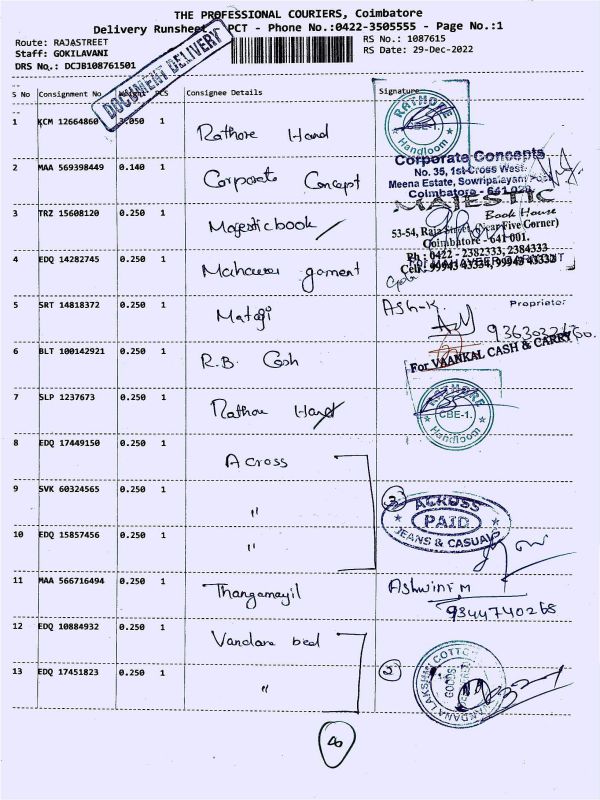 THE PROFESSIONAL COURIERS, Coimbatore
Delivery Runsheet, PCT - Phone No.:0422-3505555 - Page No.:1
Route: RAJASTREET
RS No.: 1087615
Staff: GOKILAVANI
RS Date: 29-Dec-2022
DRS No.: DCJB108761501
DOCUMENT DELIVERY
S No Consignment No. Weight PCS Consignee Details Signature
1 KCM 12664860 3.050 1 Rathore Hand
RATHORE
CBE-1.
Handloom
2 MAA 569398449 0.140 1 Corporate Concept
Corporate Concepts
No. 35, 1st Cross West,
Meena Estate, Sowripalayam Post
Coimbatore - 641 028.
3 TRZ 15608120 0.250 1 Majestic book
MAJESTIC
Book House
53-54, Raja Street, (Near Five Corner)
Coimbatore - 641 001.
Ph : 0422 - 2382333, 2384333
Cell : 99943 43334, 99943 43332
4 EDQ 14282745 0.250 1 Mahaveer garment
For MAHAVEER GARMENT
5 SRT 14818372 0.250 1 Mataji
Ash-K.
Proprietor
6 BLT 100142921 0.250 1 R.B. Cash
For VAANKAL CASH & CARRY
7 SLP 1237673 0.250 1 Rathore Hand
RATHORE
CBE-1.
Handloom
8 EDQ 17449150 0.250 1 Across
9 SVK 60324565 0.250 1 "
3
ACROSS
PAID
JEANS & CASUALS
10 EDQ 15857456 0.250 1 "
11 MAA 566716494 0.250 1 Thangamayil
Ashwini M
9344740268
12 EDQ 10884932 0.250 1 Vandana bed
13 EDQ 17451823 0.250 1 "
2
VANDANA LAKSHMI COTTON
GOODS